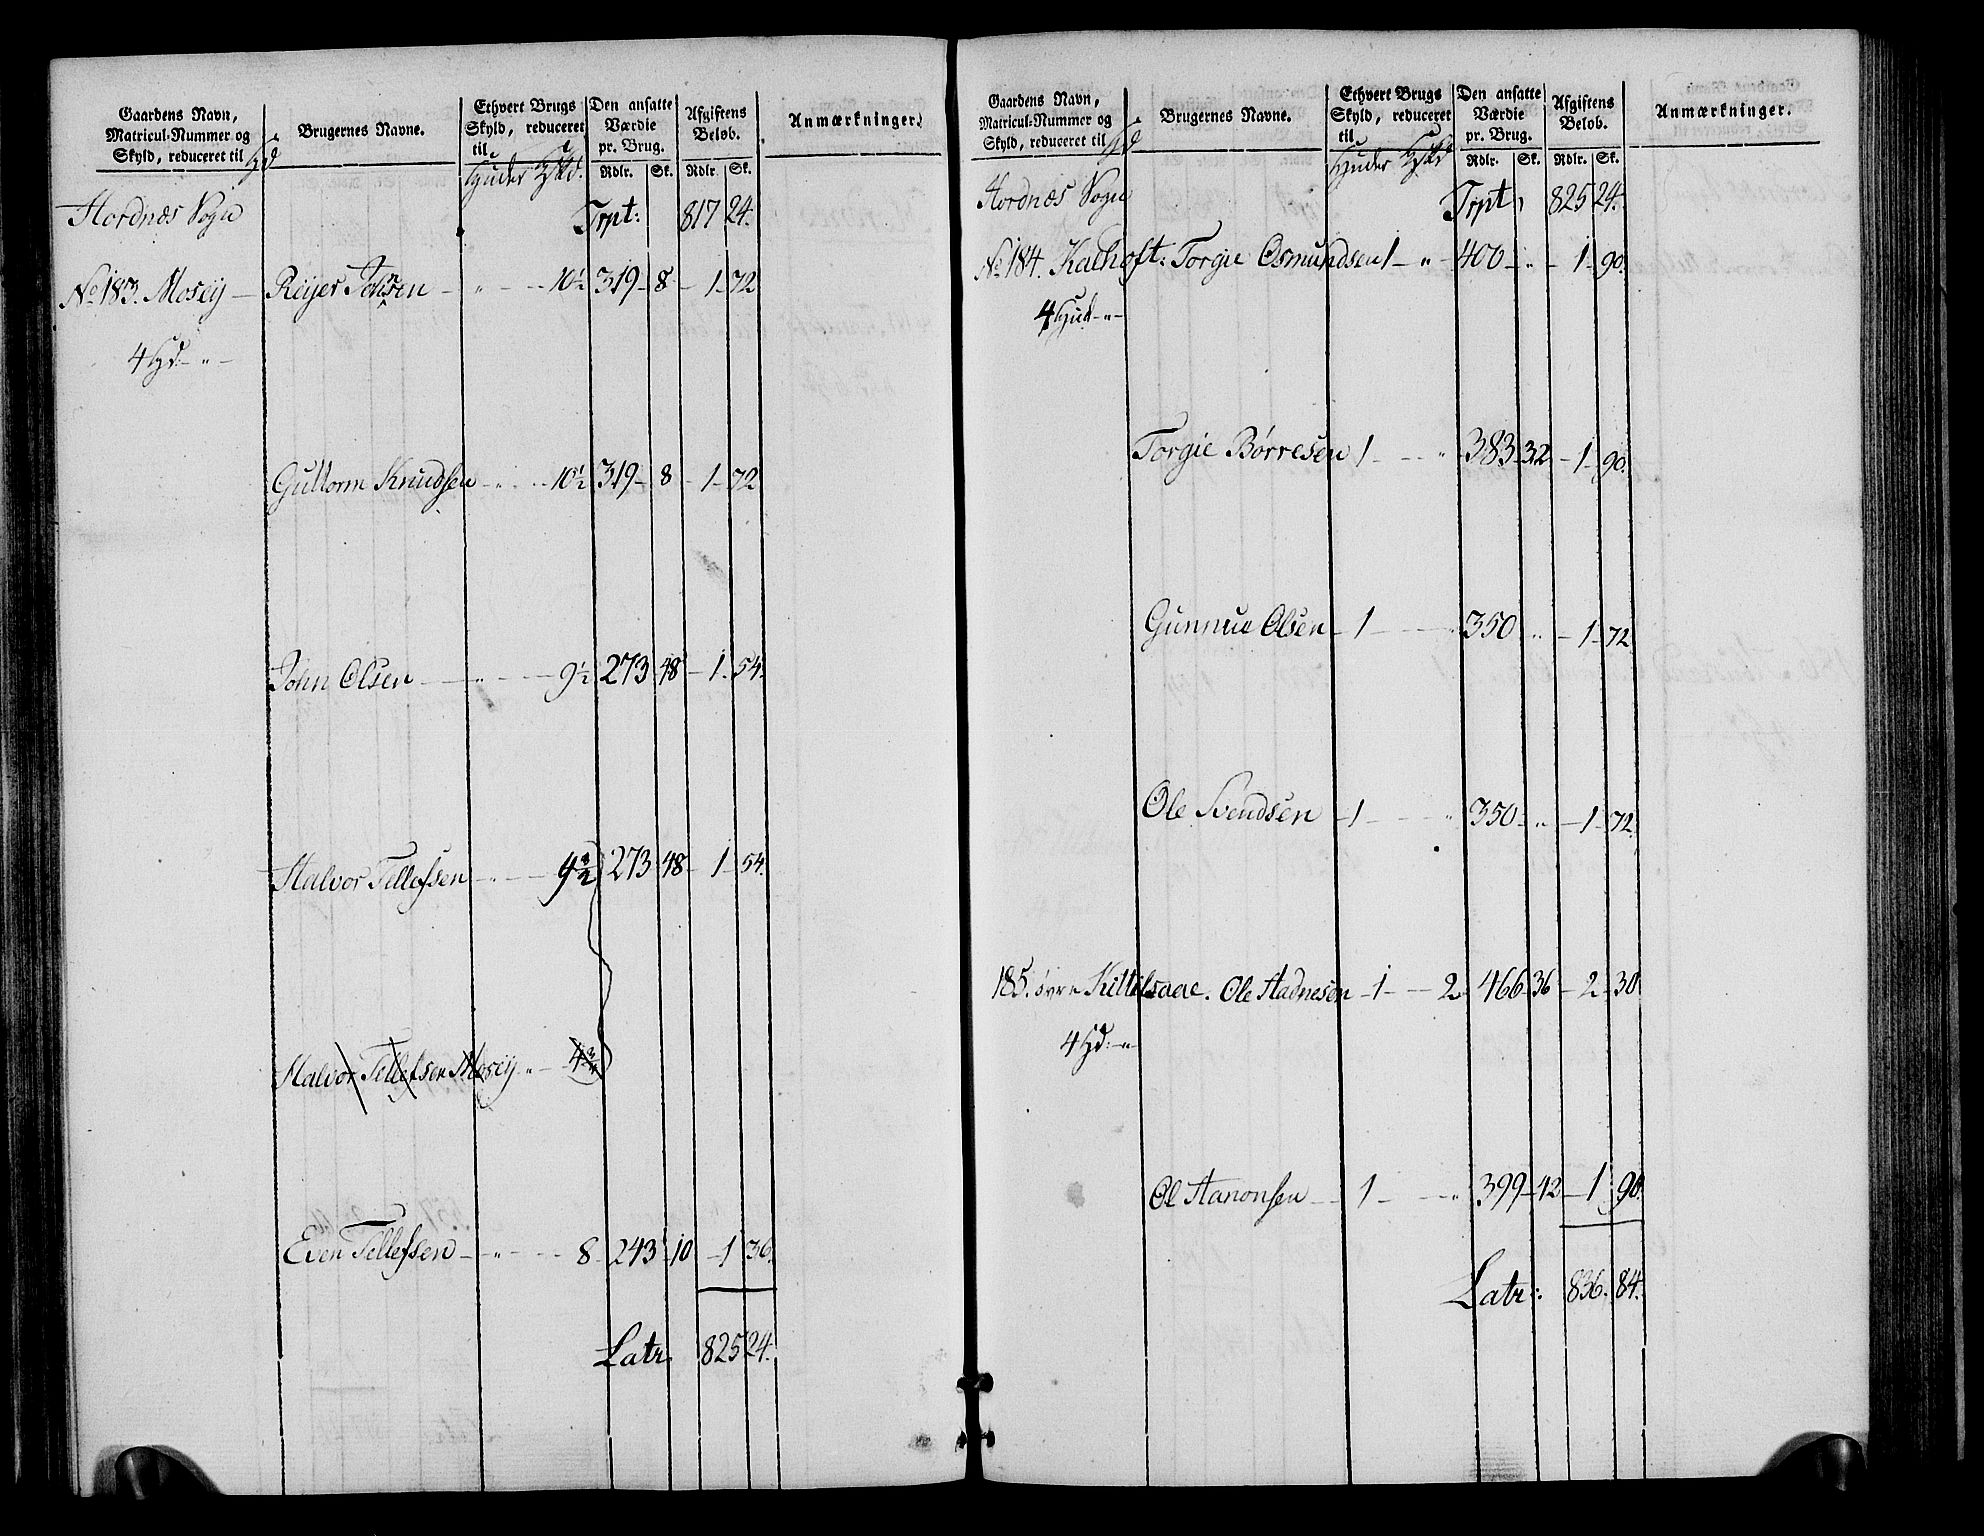 Gaardens Navn, Matricul-Nummer og Skyld, reduceret til Hd
Brugernes Navne.
Ethvert Brugs Skyld, reduceret til Huder
Den ansatte Værdie pr. Brug. Rdlr. Sk.
Afgiftens Beløb. Rdlr. Sk.
Anmærkninger.
Hordnæs Sogn Trpt: 817 24.
No 183. Mosey — Reyer Jonsen - " - 10½ 319 - 8 - 1 - 72
4 Hd - " -
Guttorm Knudsen - " - 10½ 319 - 8 - 1 - 72
John Olsen - " - 9½ 273 48 - 1. 54.
Halvor Tellefsen - " - 273 48 - 1 54.
Halvor Tellefsen Mosey " - 4¾
Even Tellefsen - " - 8 243 10 - 1 36.
Latr 825 24.
Gaardens Navn, Matricul-Nummer og Skyld, reduceret til Hd
Brugernes Navne.
Ethvert Brugs Skyld, reduceret til Huder
Den ansatte Værdie pr. Brug. Rdlr. Sk.
Afgiftens Beløb. Rdlr. Sk.
Anmærkninger.
Hordnæs Sogn Trpt, 825 24.
No 184. Torgie Osmundsen 1 - " - 400 - " - 1 - 90.
4 Hud - " -
Torgie Børresen 1 - " - 383 - 32 - 1 - 90.
Olsen - 1 - " 350 " - 1 - 72.
Ole Svendsen - 1 - " 350 - " - 1 - 72.
185. øvre Ole - 1 - 2 466 36 - 2 - 30
4 Hd: - " -
Ol Aanonsen - 1 - " 399 - 42 - 1 90.
Latr: 836. 84.